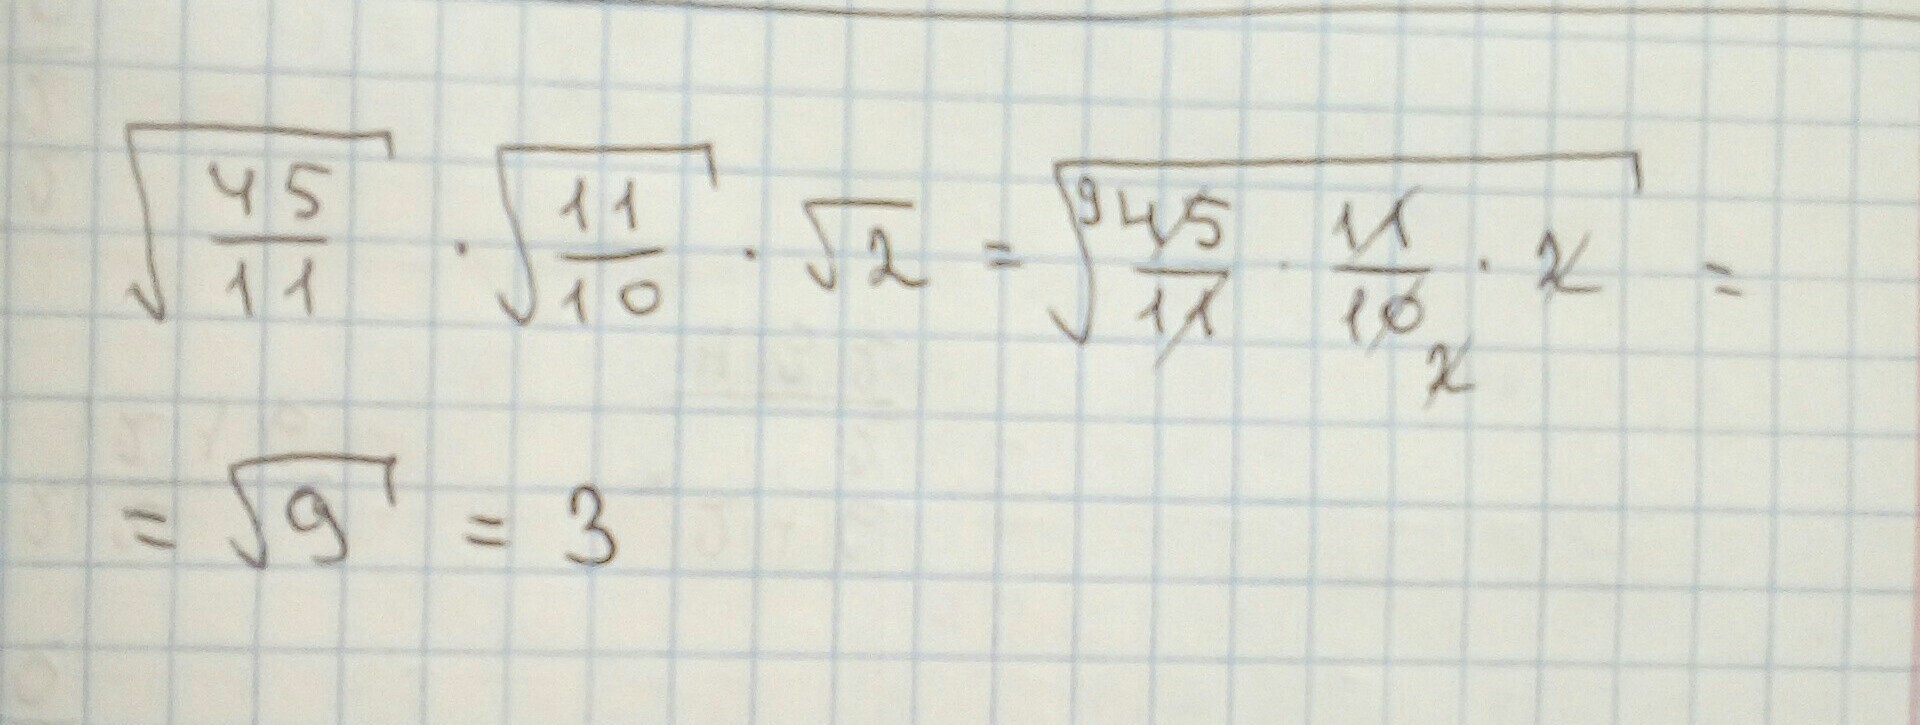 √(45/11) · √(11/10) · √2 = √(⁹45/11 · 11/10₂ · 2) =
= √9 = 3